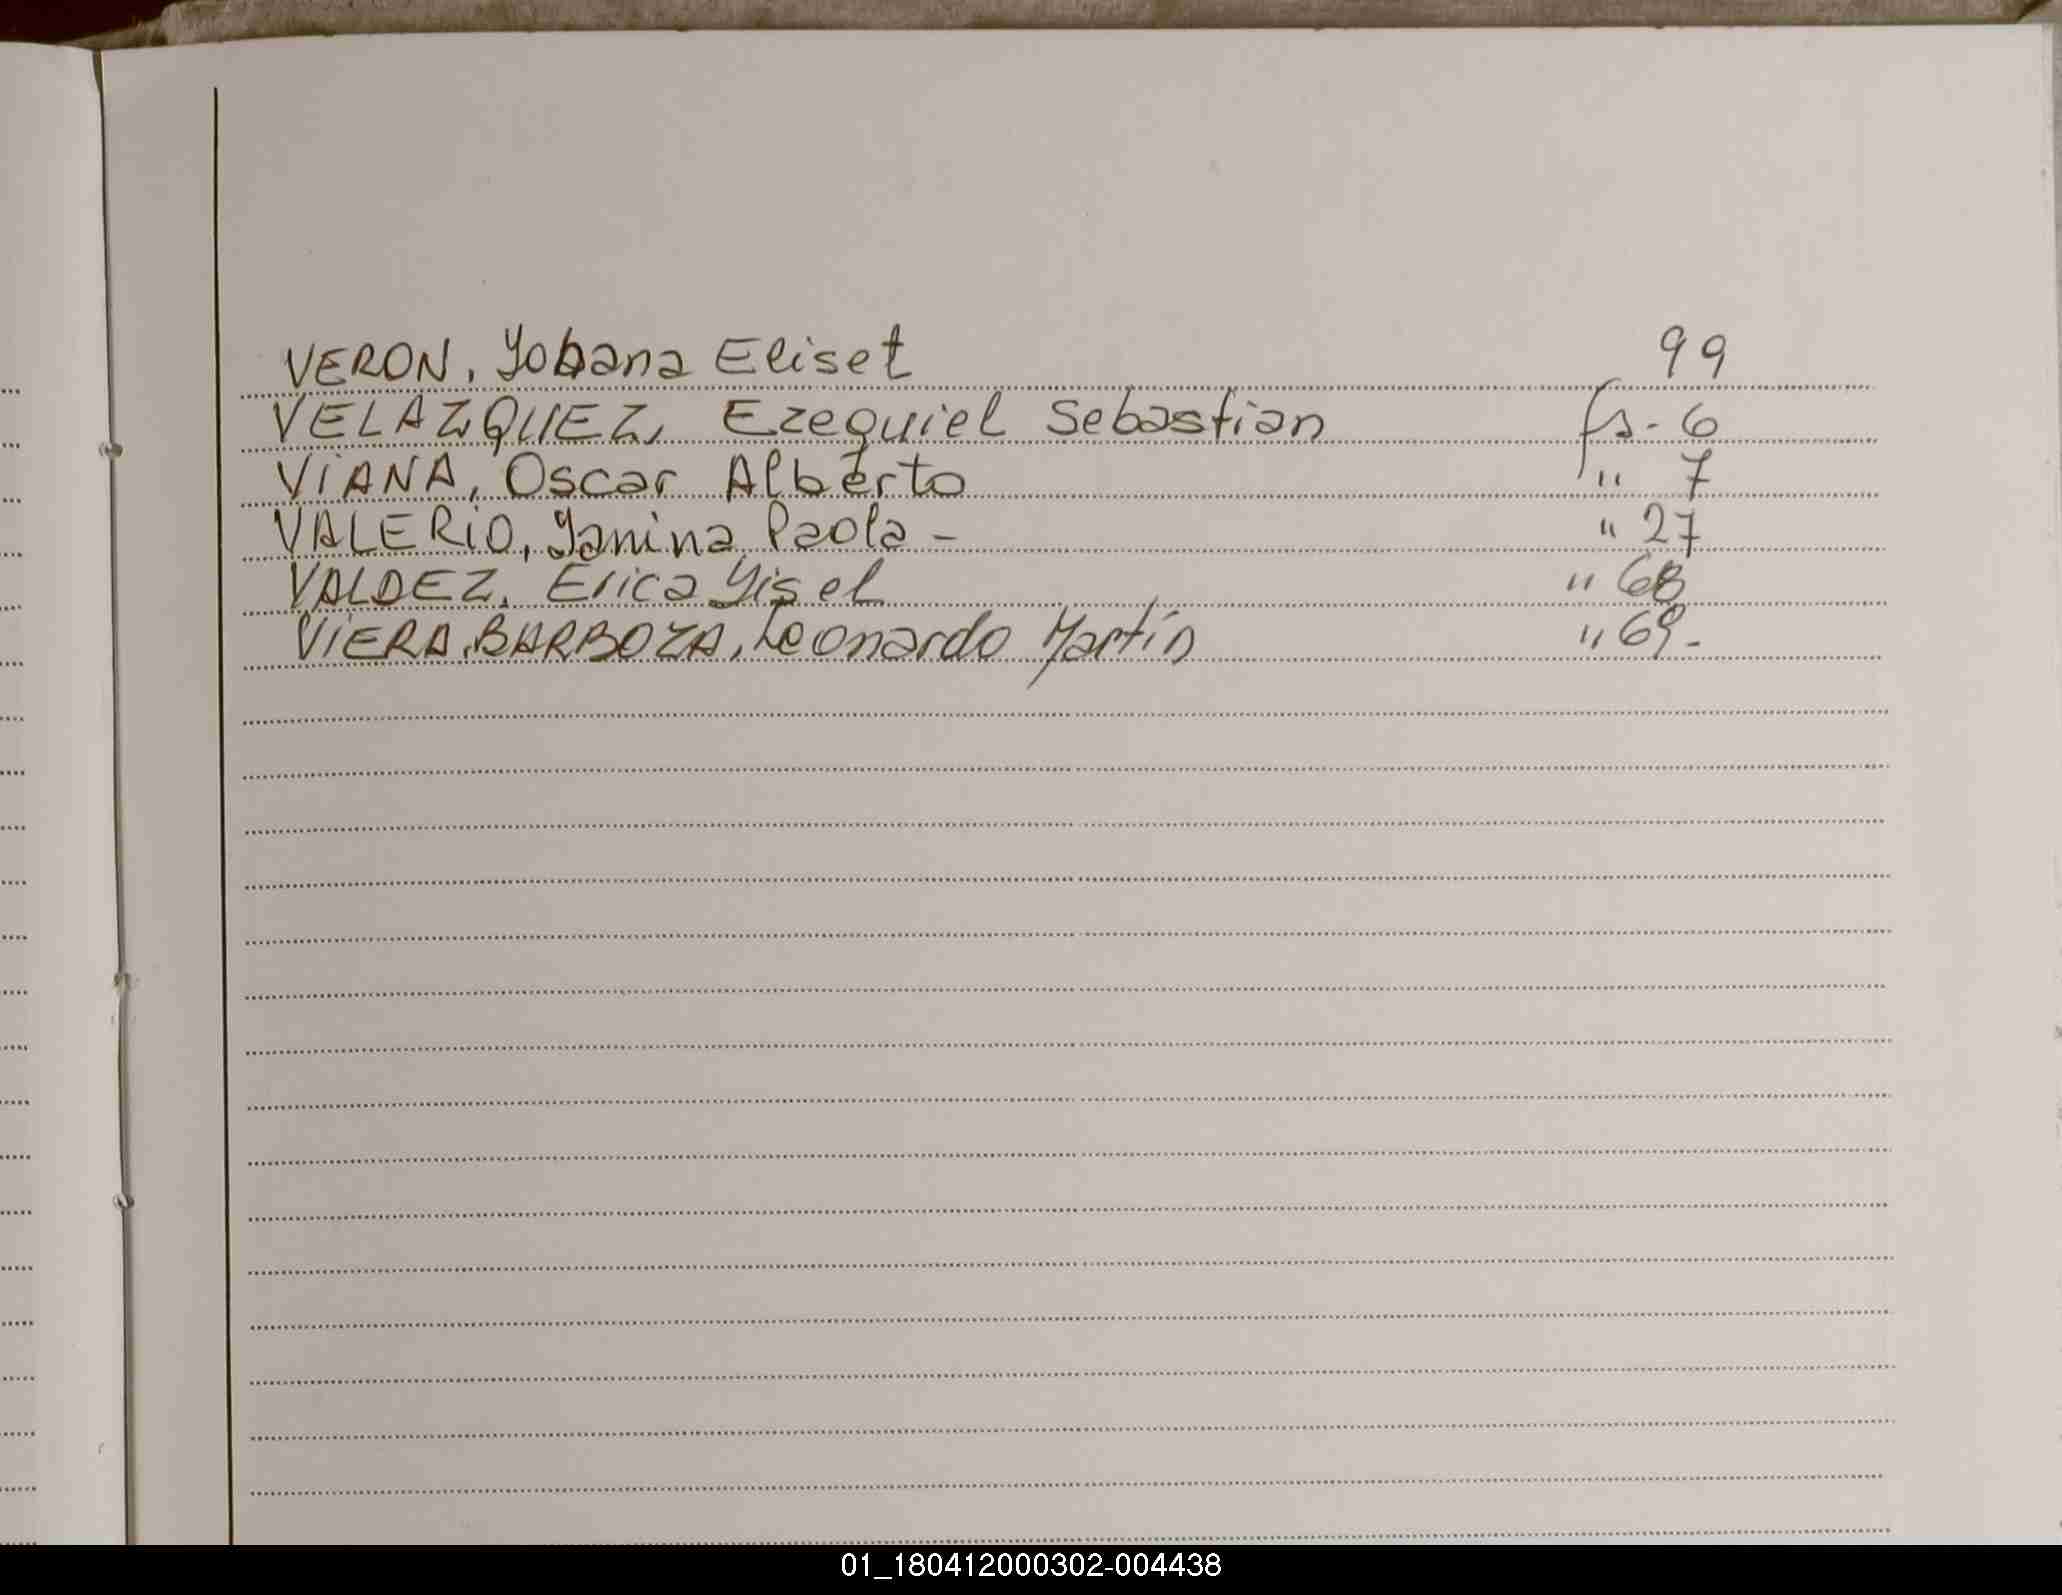 VERON, Yohana Eliset 99
VELAZQUEZ, Ezequiel Sebastian fs. 6
VIANA, Oscar Alberto " 7
VALERIO, Yanina Paola - " 27
VALDEZ, Erica Yisel " 68
VIERA BARBOZA, Leonardo Martín " 69.
01_180412000302-004438